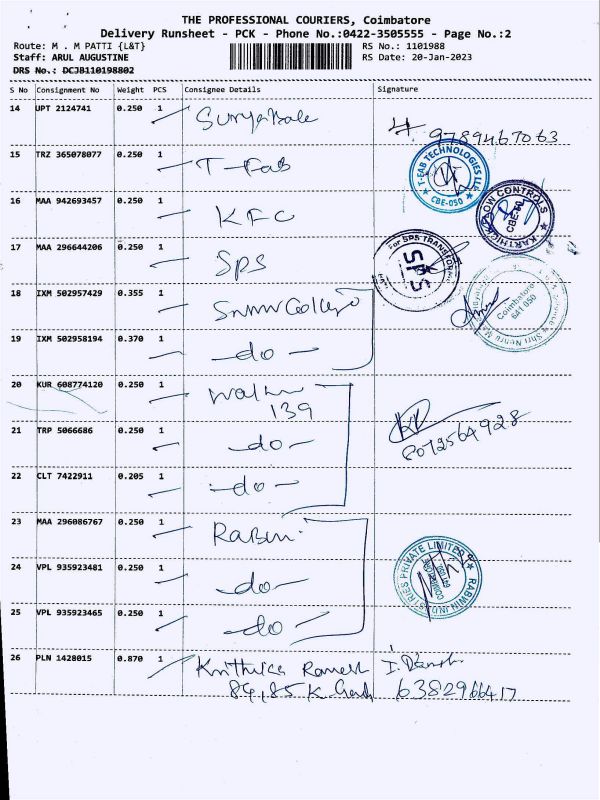 THE PROFESSIONAL COURIERS, Coimbatore
Delivery Runsheet - PCK - Phone No.:0422-3505555 - Page No.:2
Route: M . M PATTI {L&T} RS No.: 1101988
Staff: ARUL AUGUSTINE RS Date: 20-Jan-2023
DRS No.: DCJB110198802
S No Consignment No Weight PCS Consignee Details Signature
14 UPT 2124741 0.250 1
9789467063
15 TRZ 365078077 0.250 1 T-Fab
T-FAB TECHNOLOGIES LLP
CBE-050
16 MAA 942693457 0.250 1 KFC
KARTHICK FLOW CONTROLS
CBE-50
17 MAA 296644206 0.250 1 SPS
For SPS TRANSFORM
SPS
18 IXM 502957429 0.355 1 SNMV College
Coimbatore
641 050
19 IXM 502958194 0.370 1 -do-
20 KUR 608774120 0.250 1
139
21 TRP 5066686 0.250 1 -do-
8072564928
22 CLT 7422911 0.205 1 -do-
23 MAA 296086767 0.250 1 Rabwin
RABWIN INDUSTRIES PRIVATE LIMITED
24 VPL 935923481 0.250 1 -do-
25 VPL 935923465 0.250 1 -do-
26 PLN 1428015 0.870 1 Krithica Ramesh
84,85 K. 6382966417